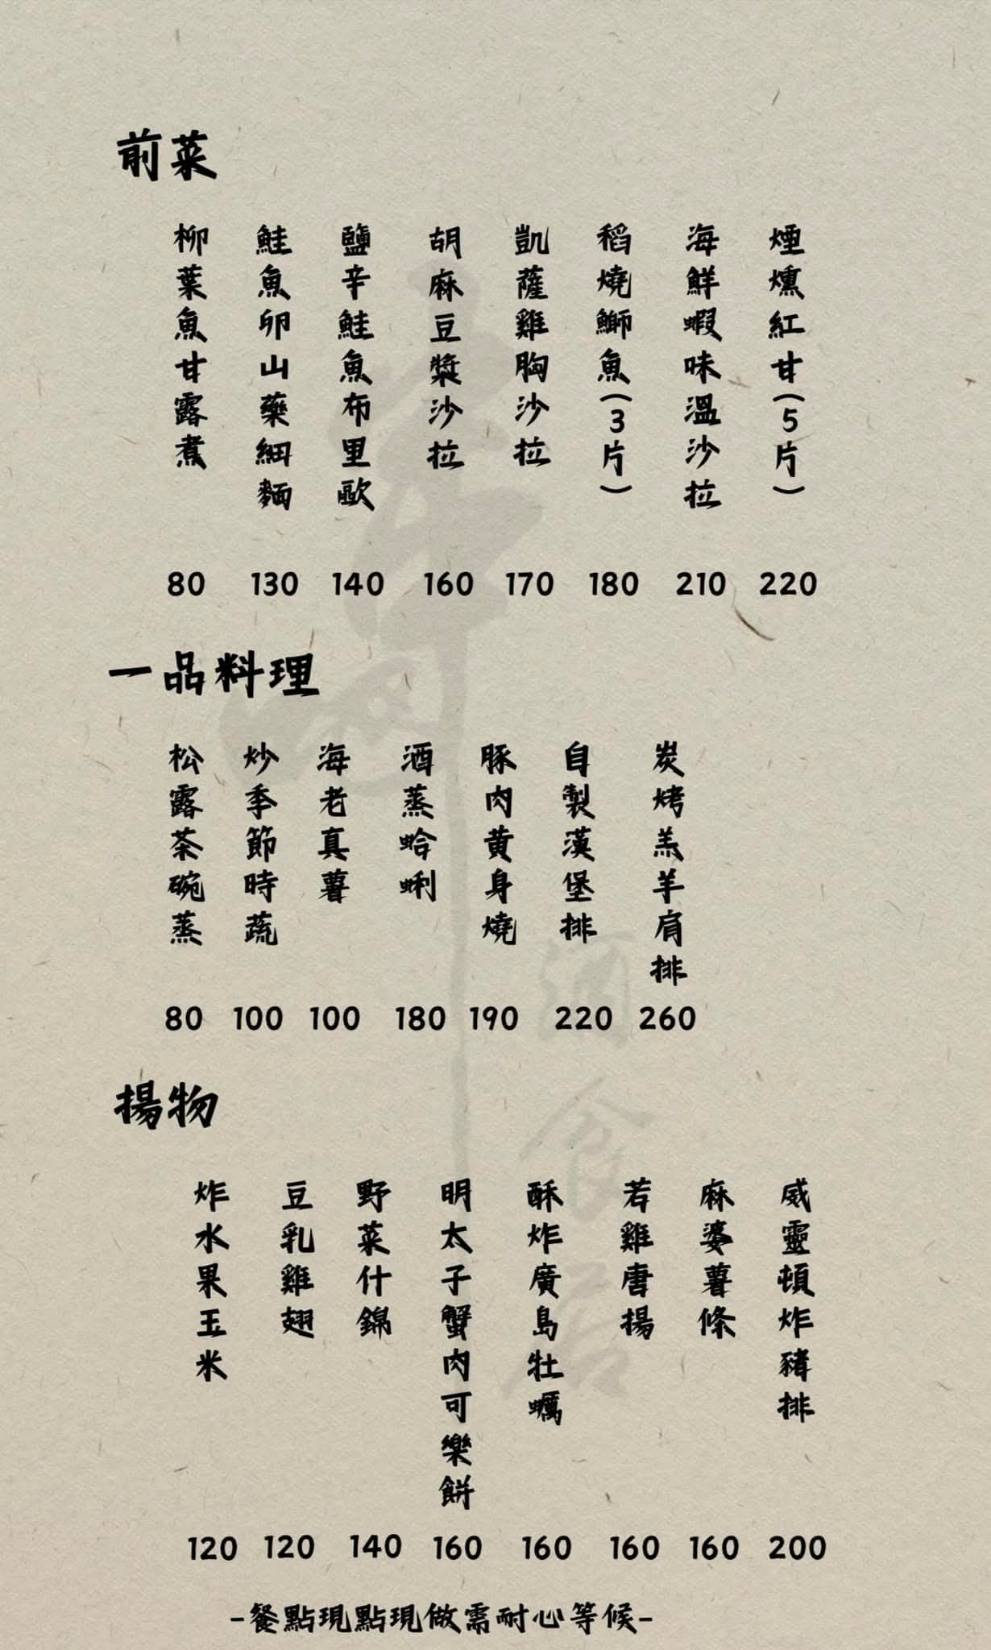 前菜
柳葉魚甘露煮
鮭魚卵山藥細麵
鹽辛鮭魚布里歐
胡麻豆漿沙拉
凱薩雞胸沙拉
稻燒鰤魚(3片)
海鮮蝦味溫沙拉
煙燻紅甘(5片)
80 130 140 160 170 180 210 220
一品料理
松露茶碗蒸
炒季節時蔬
海老真薯
酒蒸蛤蜊
豚肉黃身燒
自製漢堡排
炭烤羔羊肩排
80 100 100 180 190 220 260
揚物
炸水果玉米
豆乳雞翅
野菜什錦
明太子蟹肉可樂餅
酥炸廣島牡蠣
若雞唐揚
麻婆薯條
威靈頓炸豬排
120 120 140 160 160 160 160 200
-餐點現點現做需耐心等候-